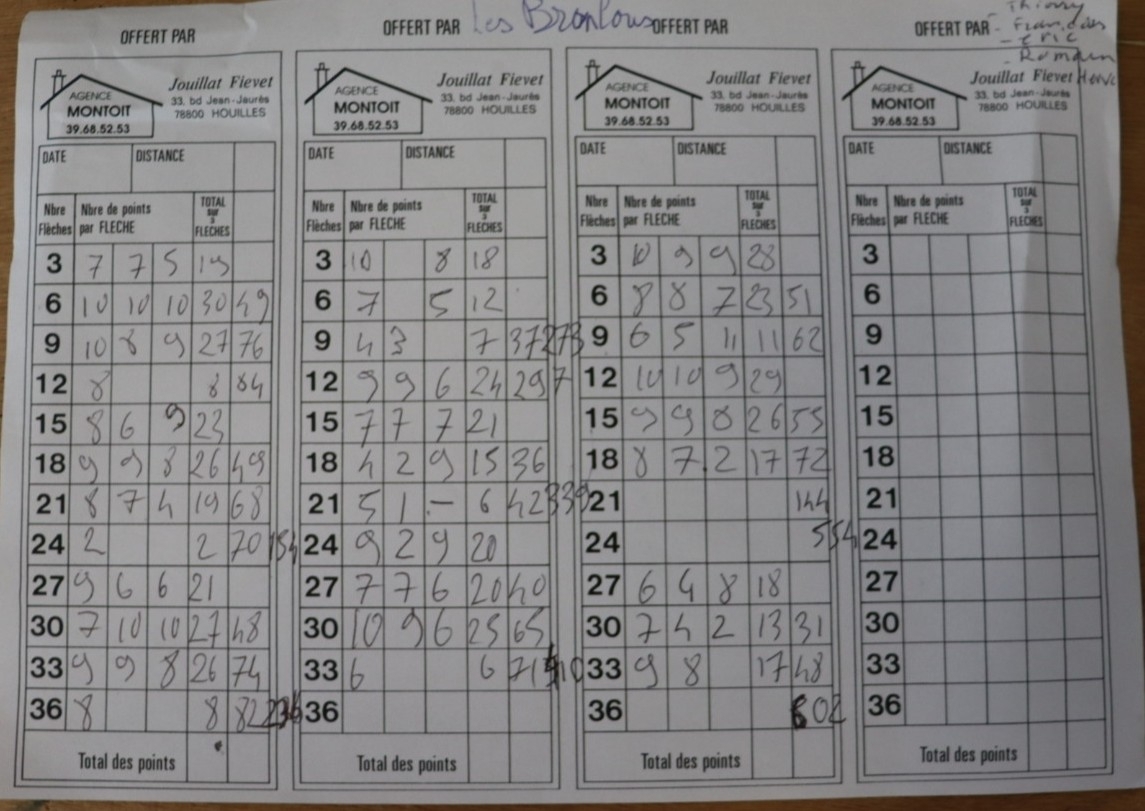 Les Bronlous
Thierry
- François
- Eric
- Romain
Hervé
OFFERT PAR
AGENCE
MONTOIT
39.68.52.53
Jouillat Fievet
33. bd Jean-Jaurès
78800 HOUILLES
DATE DISTANCE
Nbre Flèches Nbre de points par FLECHE TOTAL sur 3 FLECHES
3 7 7 5 19
6 10 10 10 30 49
9 10 8 9 27 76
12 8 8 84
15 8 6 9 23
18 9 9 8 26 49
21 8 7 4 19 68
24 2 2 70 154
27 9 6 6 21
30 7 10 10 27 48
33 9 9 8 26 74
36 8 8 82 236
Total des points
OFFERT PAR
AGENCE
MONTOIT
39.68.52.53
Jouillat Fievet
33. bd Jean-Jaurès
78800 HOUILLES
DATE DISTANCE
Nbre Flèches Nbre de points par FLECHE TOTAL sur 3 FLECHES
3 10 8 18
6 7 5 12
9 4 3 7 37 273
12 9 9 6 24 297
15 7 7 7 21
18 4 2 9 15 36
21 5 1 - 6 42 339
24 9 2 9 20
27 7 7 6 20 40
30 10 9 6 25 65
33 6 6 71 410
36
Total des points
OFFERT PAR
AGENCE
MONTOIT
39.68.52.53
Jouillat Fievet
33. bd Jean-Jaurès
78800 HOUILLES
DATE DISTANCE
Nbre Flèches Nbre de points par FLECHE TOTAL sur 3 FLECHES
3 10 9 9 28
6 8 8 7 23 51
9 6 5 11 11 62
12 10 10 9 29
15 9 9 8 26 55
18 8 7 2 17 72
21 144
24 554
27 6 4 8 18
30 7 4 2 13 31
33 9 8 17 48
36 602
Total des points
OFFERT PAR
AGENCE
MONTOIT
39.68.52.53
Jouillat Fievet
33. bd Jean-Jaurès
78800 HOUILLES
DATE DISTANCE
Nbre Flèches Nbre de points par FLECHE TOTAL sur 3 FLECHES
3
6
9
12
15
18
21
24
27
30
33
36
Total des points